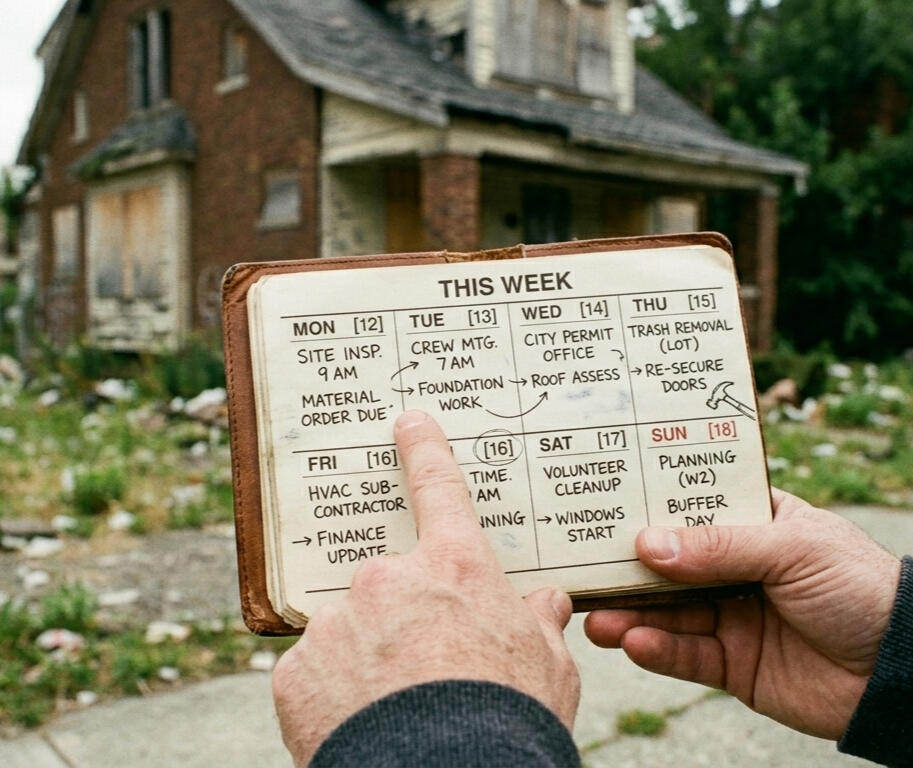 THIS WEEK
MON [12]
SITE INSP.
9 AM
MATERIAL
ORDER DUE
TUE [13]
CREW MTG.
7 AM
→ FOUNDATION
WORK
WED [14]
CITY PERMIT
OFFICE
→ ROOF ASSESS
THU [15]
TRASH REMOVAL
(LOT)
→ RE-SECURE
DOORS
FRI [16]
HVAC SUB-
CONTRACTOR
→ FINANCE
UPDATE
[16]
TIME.
AM
SAT [17]
VOLUNTEER
CLEANUP
→ WINDOWS
START
SUN [18]
PLANNING
(W2)
BUFFER
DAY